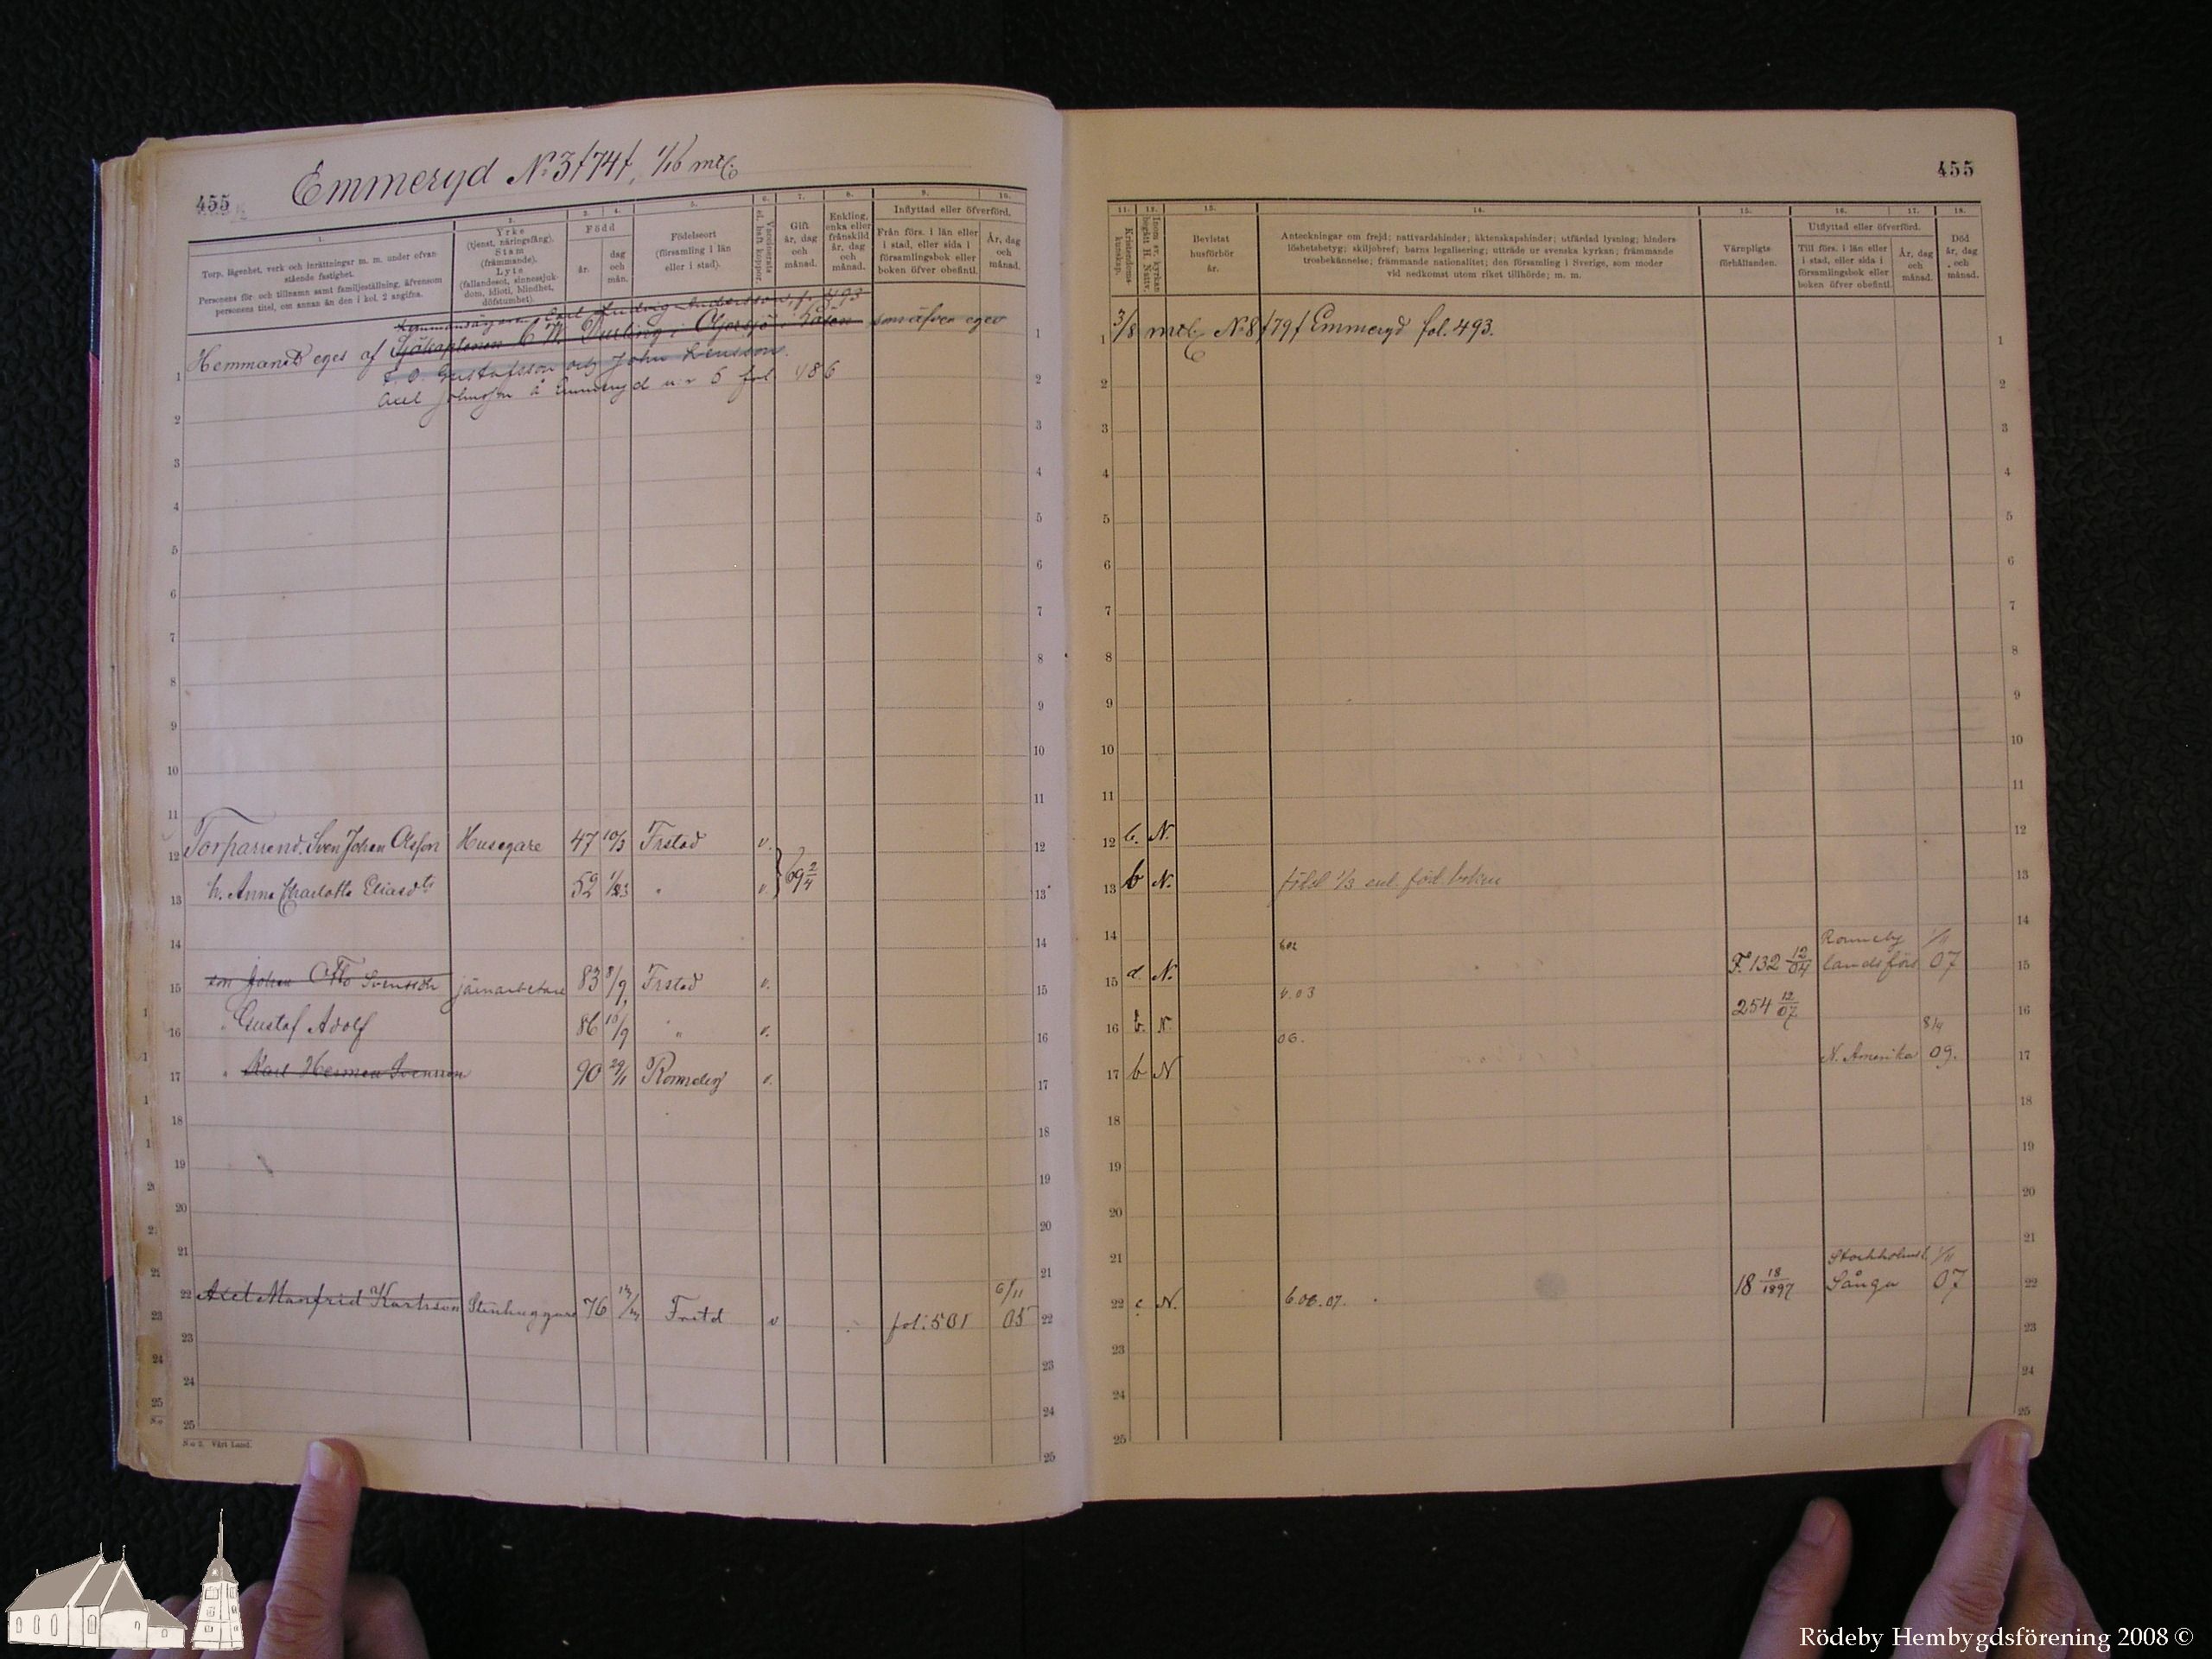 455
Emmeryd No 3 f 74 f, 1/16 mtl
1.
Torp, lägenhet, verk och inrättningar m. m. under ofvan stående fastighet.
Personens för- och tillnamn samt familjeställning, äfvensom personens titel, om annan än den i kol. 2 angifna.
2.
Yrke
(tjenst, näringsfång).
Stam
(främmande).
Lyte
(fallandesot, sinnessjukdom, idioti, blindhet, döfstumhet).
3. 4.
Född
år.
dag och mån.
5.
Födelseort
(församling i län eller i stad).
6.
7.
Gift
år, dag
och
månad.
8.
Enkling, enka eller frånskild år, dag och månad.
9. 10.
Inflyttad eller öfverförd.
Från förs. i län eller i stad, eller sida i församlingsbok eller boken öfver obefintl.
År, dag och månad.
Hemmansägaren Carl Ludvig Andersson, f. 493
Hemmanet eges af Sjökaptenen C W som äfven eger
Gustafsson och John
Axel Johnsson å Emmeryd n:r 5 fol. 486
Torparend. Sven Johan Olsson Husegare 47 10/3 Frstad v.
h. Anna Charlotta Eliasdtr 52 v. 69 2/4
son Johan Otto Svensson järnarbetare 83 8/9 Frstad v.
Gustaf Adolf 86 10/9 " v.
" Karl Herman Svensson 90 29/1 Ronneby v.
Axel Manfrid Karlsson Stenhuggare 76 Frstd v fol. 501 6/11 05
No 2. Vårt Land.
455
11. 12. 13. 14. 15. 16. 17. 18.
Kristendomskunskap.
Inom sv. kyrkan begått H. Nattv.
Bevistat
husförhör
år.
Anteckningar om frejd; nattvardshinder; äktenskapshinder; utfärdad lysning; hinderslöshetsbetyg; skiljobref; barns legalisering; utträde ur svenska kyrkan; främmande trosbekännelse; främmande nationalitet; den församling i Sverige, som moder vid nedkomst utom riket tillhörde; m. m.
Värnpligts
förhållanden.
Utflyttad eller öfverförd.
Till förs. i län eller i stad, eller sida i församlingsbok eller boken öfver obefintl.
År, dag och månad.
Död
år, dag
och
månad.
3/8 mtl No 8 f 79 f Emmeryd fol. 493.
b. N.
b N. född 1/3 enl. föd. boken
Ronneby 1/11
d. N. F. 132 12/04 landsförs 07
v. 03
b. N. 254 12/07
06. 8/4
b N N. Amerika 09.
Stockholms l. 1/11
c N. 6.06.07. 18 18/1897 Sånga 07
Rödeby Hembygdsförening 2008 ©